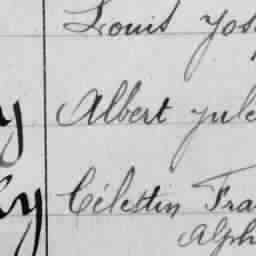 Louis Jos
Albert Jule
y Célestin Fra
Alph